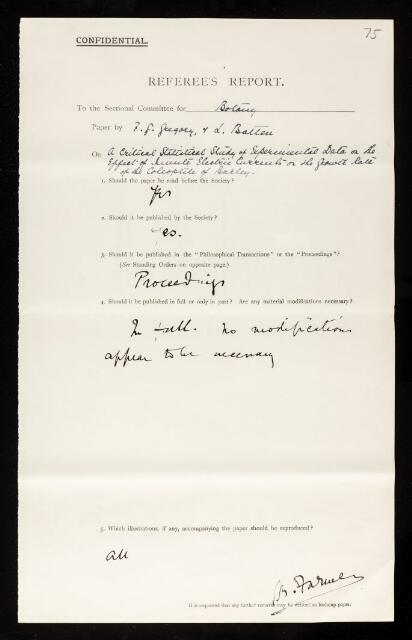 75
CONFIDENTIAL.
REFEREE'S REPORT.
To the Sectional Committee for Botany
Paper by F. G. Gregory, & L. Batten
On A Critical Statistical Study of Experimental Data on the
Effect of Minute Electric Currents on the Growth Rate
of the Coleoptile of Barley.
1. Should the paper be read before the Society?
Yes
2. Should it be published by the Society?
Yes.
3. Should it be published in the "Philosophical Transactions" or the "Proceedings"?
(See Standing Orders on opposite page.)
Proceedings
4. Should it be published in full or only in part? Are any material modifications necessary?
In full. No modifications
appear to be necessary
5. Which illustrations, if any, accompanying the paper should be reproduced?
all
J. B. Farmer
It is requested that any further remarks may be written on foolscap paper.